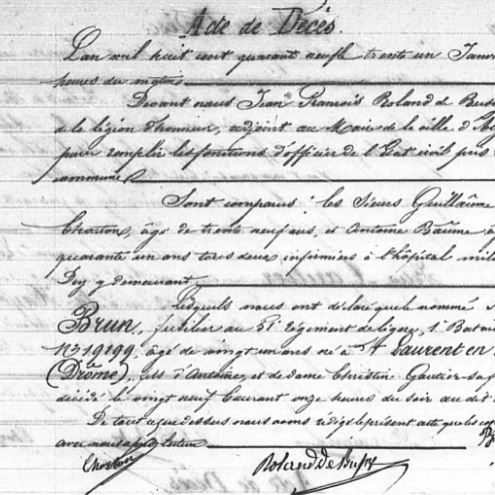 Acte de Décès.
L'an mil huit cent quarante neuf le trente un Janv
heures du matin
Devant nous Jean François Roland de Buss
de la légion d'honneur, adjoint au Maire de la ville d'A
pour remplir les fonctions d'officier de l'Etat civil
commune
Sont comparus : les Sieurs Guillaume
Charton, âgé de trente neuf ans, et Antoine Baume
quarante un ans tous deux infirmiers à l'hôpital mil
y demeurant
Lesquels nous ont déclaré que le nommé
Brun, fusilier au 51e régiment de ligne, 1er Batai
No 19199, âgé de vingt un ans né à St Laurent en
(Drôme), fils d'Antoine, et de dame Christine Gautier
décédé le vingt neuf Courant onze heures du soir au dit
De tout ce que dessus nous avons rédigé le présent acte que les
avec nous après lecture
Charton Roland de Bussy